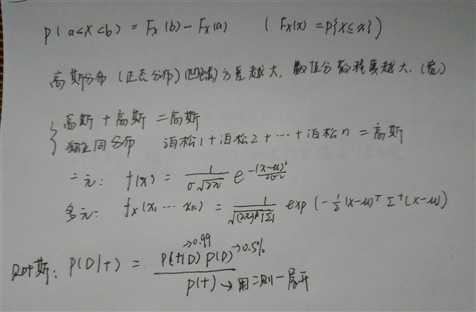 P(a<X<b) = Fx(b) - Fx(a) ( Fx(x) = P{X≤x})
高斯分布 (正态分布) 方差越大, 数值分散程度越大.
高斯 + 高斯 = 高斯
独立同分布 泊松1 + 泊松2 + … + 泊松n = 高斯
一元: f(x) = 1/(σ√2π) e^(-(x-μ)²/2σ²)
多元: fx(x1 … xk) = 1/√((2π)^k|Σ|) exp(-1/2 (x-μ)^T Σ^-1 (x-μ))
贝叶斯: P(D|+) = P(+|D) P(D) / P(+)
→0.99 →0.5%
→ 用二则一展开